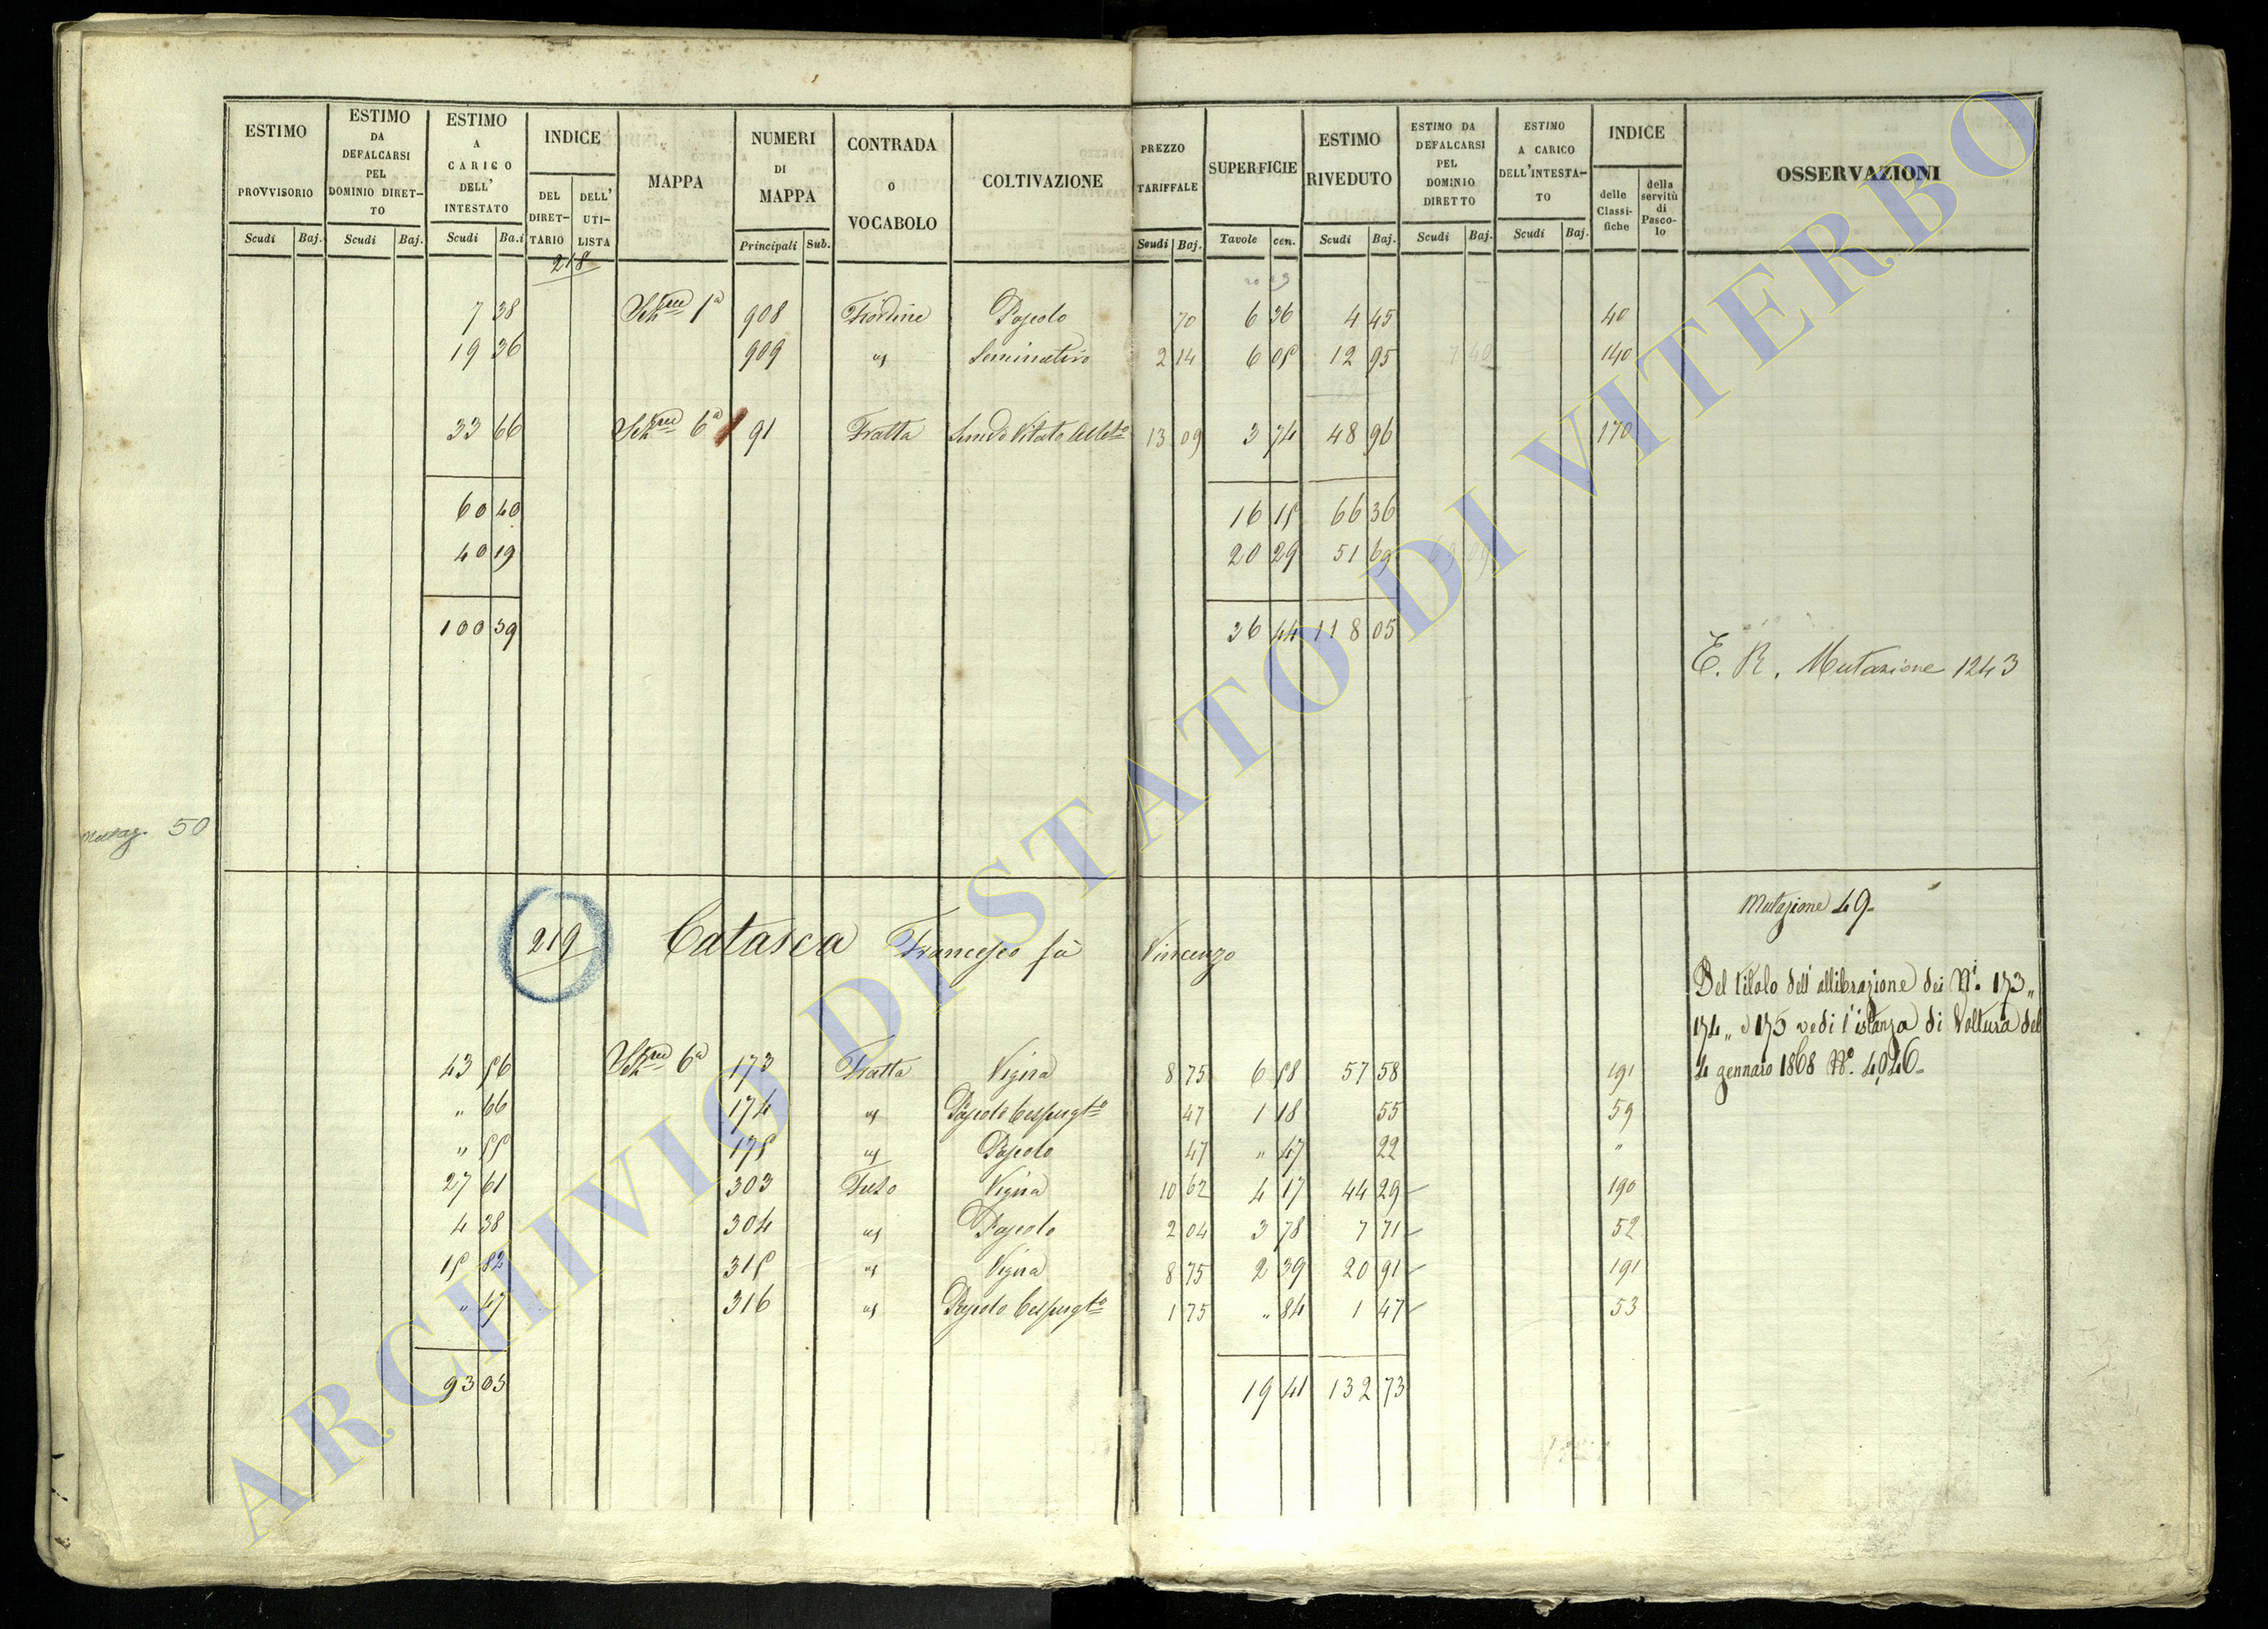 ESTIMO PROVVISORIO Scudi Baj.
ESTIMO DA DEFALCARSI PEL DOMINIO DIRET-TO Scudi Baj.
ESTIMO A CARICO DELL' INTESTATO Scudi Ba.i
INDICE DEL DIRET-TARIO DELL' UTI-LISTA
MAPPA
NUMERI DI MAPPA Principali Sub.
CONTRADA O VOCABOLO
COLTIVAZIONE
PREZZO TARIFFALE Scudi Baj.
SUPERFICIE Tavole cen.
ESTIMO RIVEDUTO Scudi Baj.
ESTIMO DA DEFALCARSI PEL DOMINIO DIRETTO Scudi Baj.
ESTIMO A CARICO DELL'INTESTA-TO Scudi Baj.
INDICE delle Classi-fiche della servitù di Pasco-lo
OSSERVAZIONI
218
7 38 1a 908 Pascolo 70 6 36 4 45 40
19 36 909 Seminativo 2 14 6 05 12 95 140
33 66 6a 91 Fratta 13 09 3 74 48 96 170
60 40 16 15 66 36
40 19 20 29 51 69
100 59 36 44 118 05
E. R. Mutazione 1243
Mutaz. 50
Mutazione 49.
219 Catasca Francesco fu Vincenzo
Del titolo dell'allibrazione dei Ni. 173"
174" e 175 vedi l'istanza di Voltura del
4 gennaio 1868 No. 4046.
43 56 6a 173 Fratta Vigna 8 75 6 58 57 58 191
" 66 174 Pascolo Cespugto 47 1 18 55 59
" 55 175 Pascolo 47 " 47 22 "
27 61 303 Vigna 10 62 4 17 44 29 190
4 38 304 Pascolo 2 04 3 78 7 71 52
15 82 315 Vigna 8 75 2 39 20 91 191
" 47 316 Pascolo Cespugto 1 75 " 84 1 47 53
93 05 19 41 132 73
ARCHIVIO DI STATO DI VITERBO